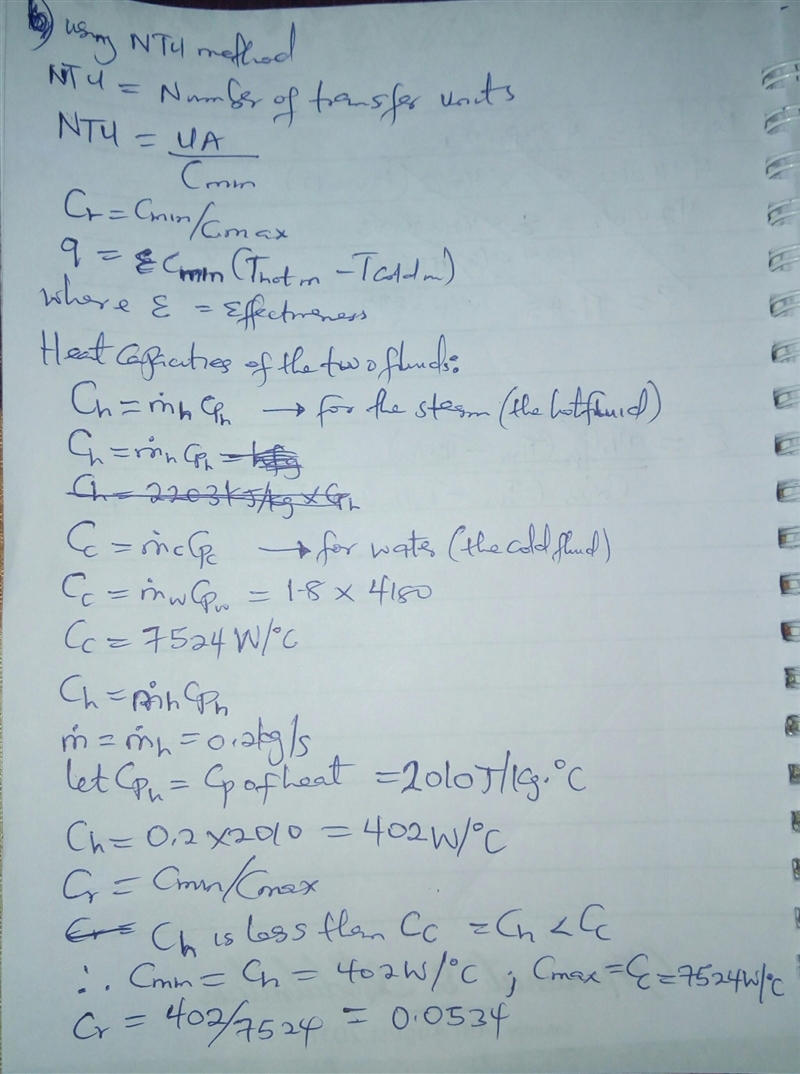 b) using NTU method
NTU = Number of transfer units
NTU = UA
Cmin
Cr = Cmin/Cmax
q = ε Cmin (Thot in - Tcold in)
where ε = Effectiveness
Heat Capacities of the two fluids:
Ch = ṁh Cph → for the steam (the hot fluid)
Ch = ṁh Cph = hfg
Ch = 2203 kJ/kg × Cph
Cc = ṁc Cpc → for water (the cold fluid)
Cc = ṁw Cpw = 1.8 × 4180
Cc = 7524 W/°C
Ch = ṁh Cph
ṁ = ṁh = 0.2 kg/s
let Cph = Cp of heat = 2010 J/kg.°C
Ch = 0.2 × 2010 = 402 W/°C
Cr = Cmin/Cmax
Cr = Ch is less than Cc = Ch < Cc
∴ Cmin = Ch = 402 W/°C ; Cmax = Cc = 7524 W/°C
Cr = 402/7524 = 0.0534